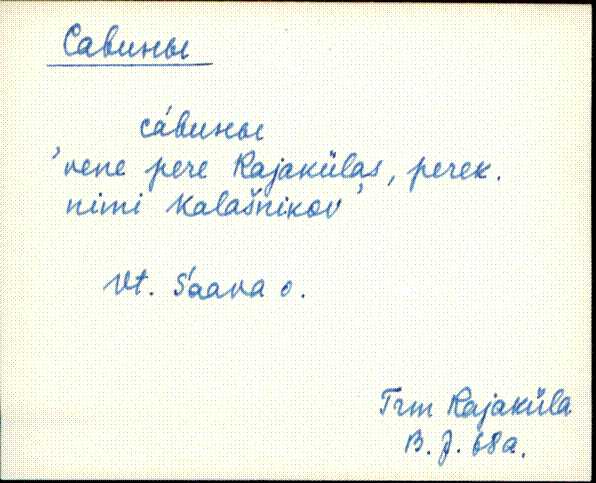 Савины
са́вины
'vene pere Rajakülas, perek.
nimi Kalašnikov'
Vt. Saava o.
Trm Rajaküla
B. J. 68a.